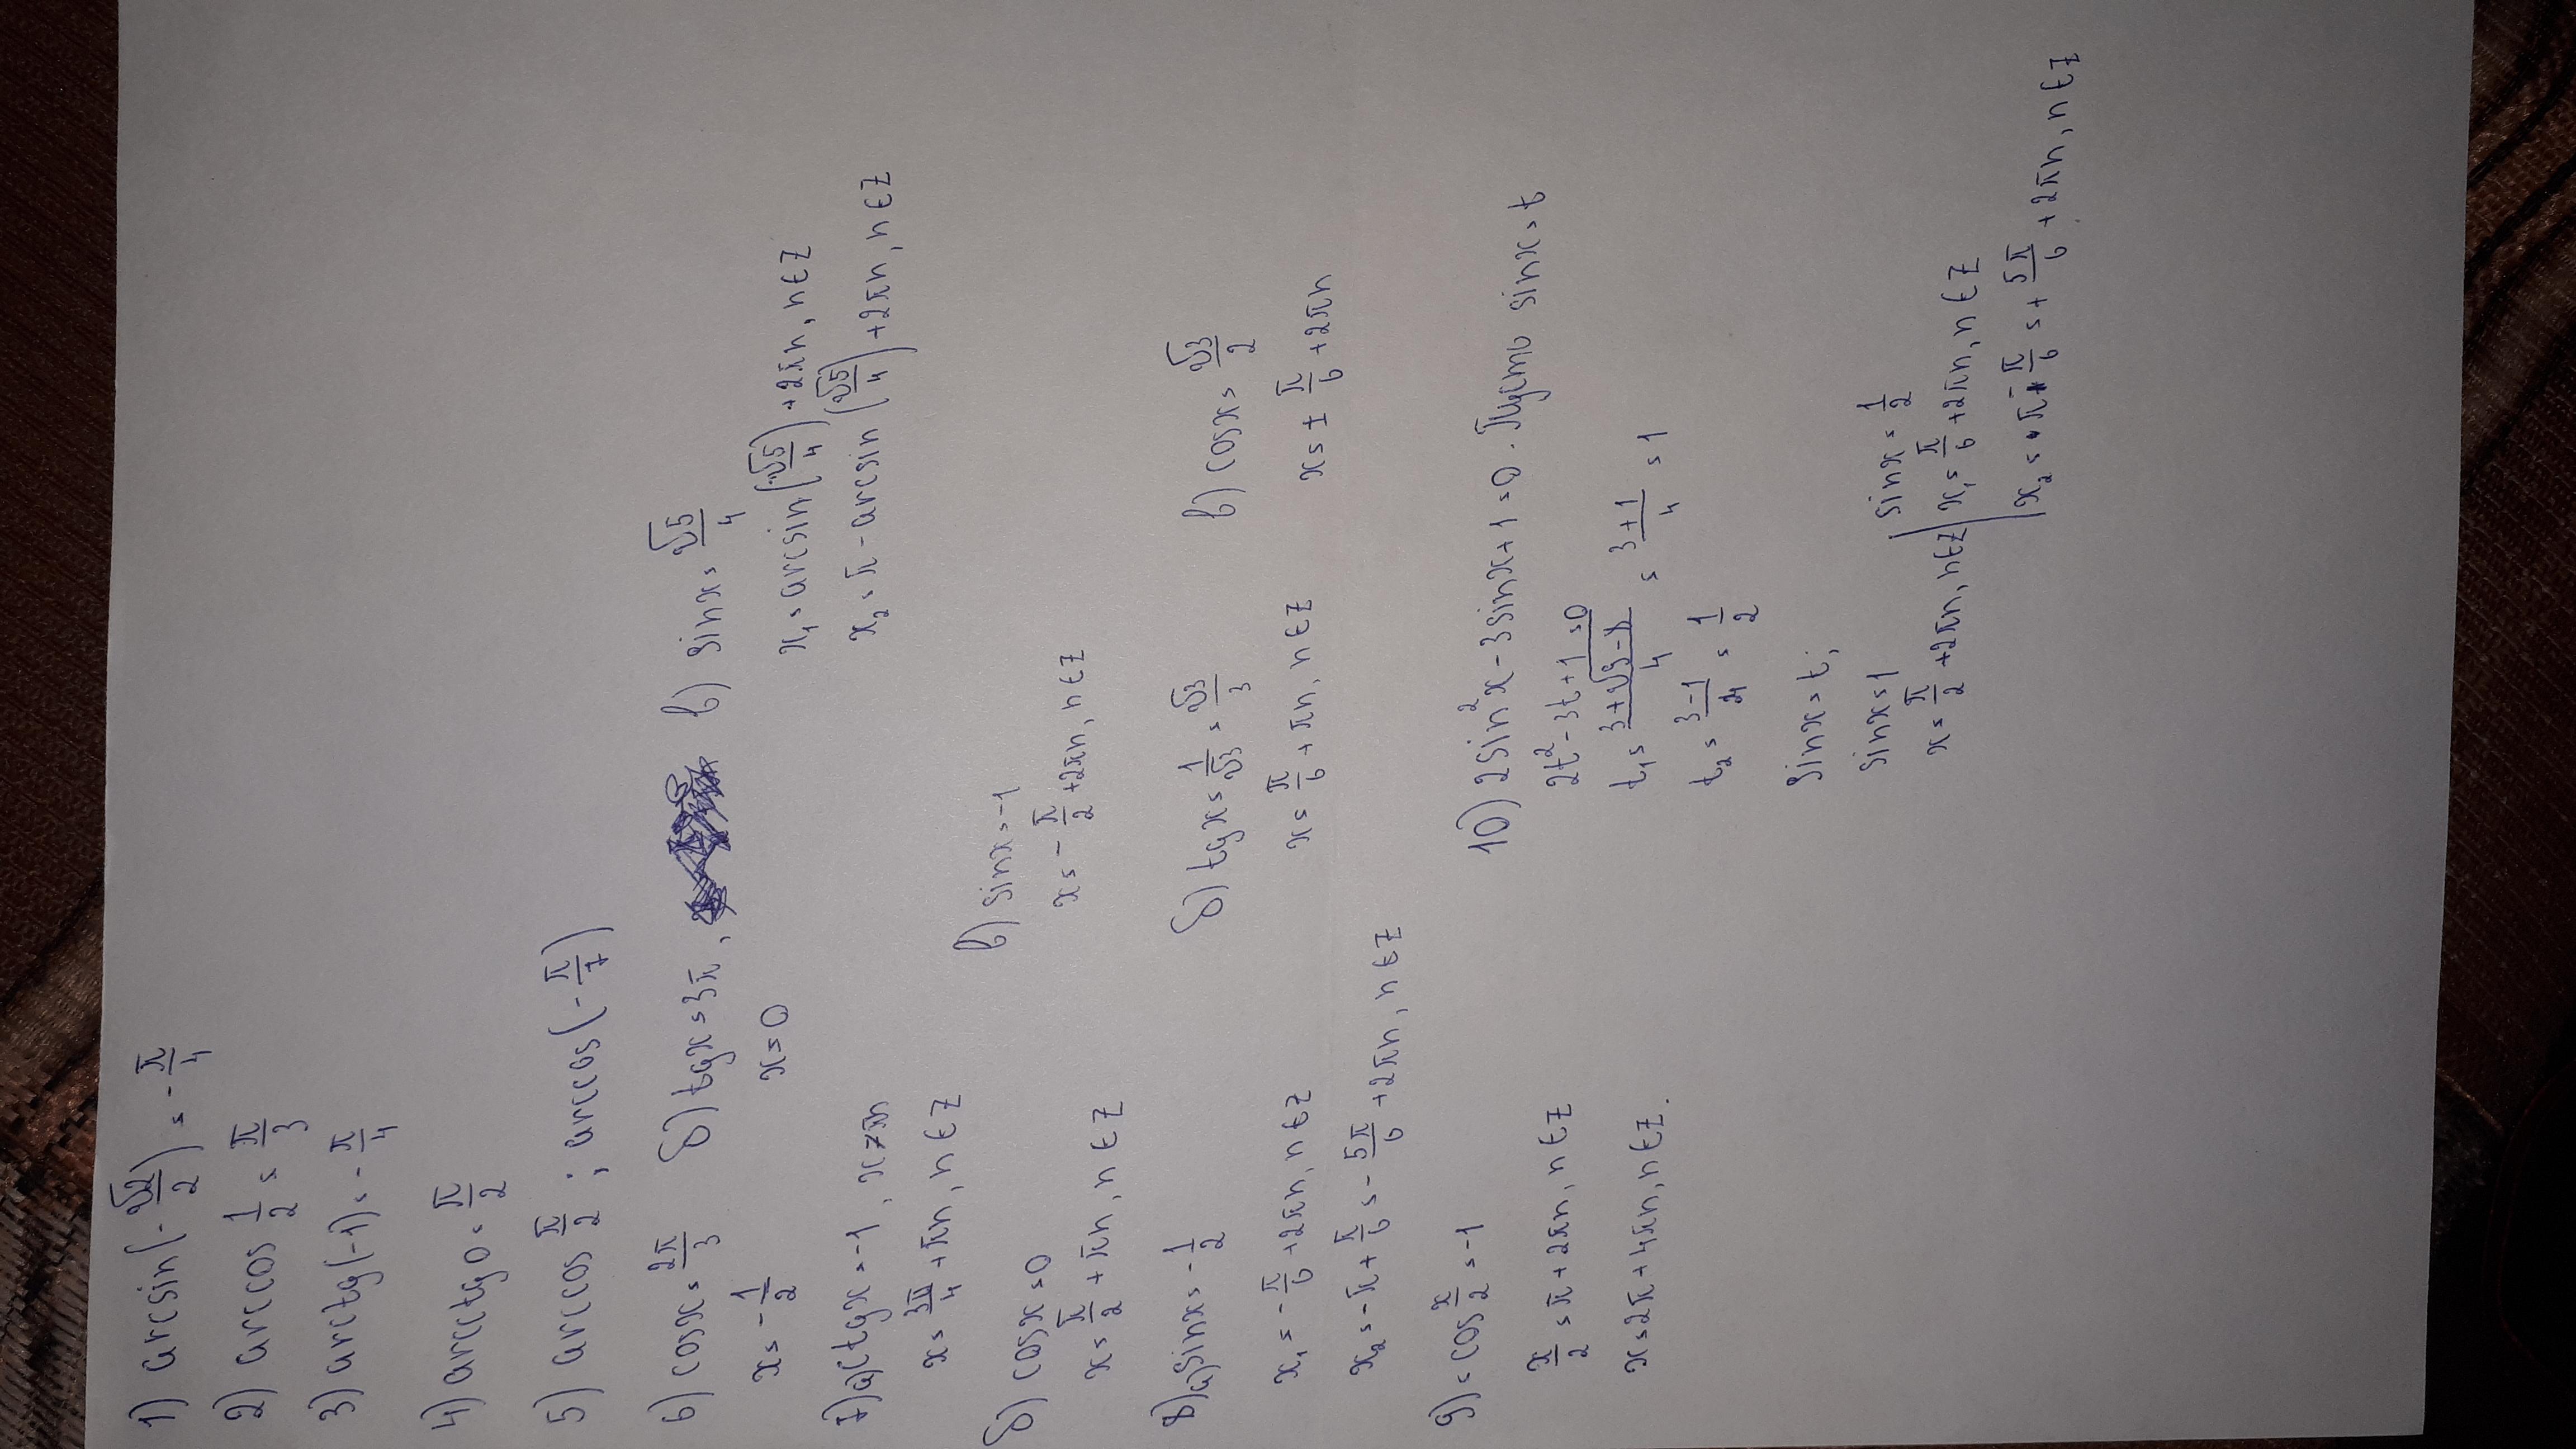 1) arcsin(-√2/2) = -π/4
2) arccos 1/2 = π/3
3) arctg(-1) = -π/4
4) arcctg 0 = π/2
5) arccos π/2 ; arccos(-π/7)
6) cosx = 2π/3 б) tgx = 3π, в) sinx = √5/4
x = -1/2 x = 0 x₁ = arcsin(√5/4) + 2πn, n∈Z
x₂ = π - arcsin(√5/4) + 2πn, n∈Z
7) а) ctgx = -1, x≠πn
x = 3π/4 + πn, n∈Z
б) cosx = 0 в) sinx = -1
x = π/2 + πn, n∈Z x = -π/2 + 2πn, n∈Z
8) а) sinx = -1/2 б) tgx = 1/√3 = √3/3 в) cosx = √3/2
x₁ = -π/6 + 2πn, n∈Z x = π/6 + πn, n∈Z x = ± π/6 + 2πn
x₂ = -π + π/6 = -5π/6 + 2πn, n∈Z
9) = cos x/2 = -1
x/2 = π + 2πn, n∈Z
x = 2π + 4πn, n∈Z.
10) 2sin²x - 3sinx + 1 = 0. Пусть sinx = t
2t² - 3t + 1 = 0
t₁ = (3+√9-8)/4 = (3+1)/4 = 1
t₂ = (3-1)/4 = 1/2
sinx = t;
sinx = 1 sinx = 1/2
x = π/2 + 2πn, n∈Z x₁ = π/6 + 2πn, n∈Z
x₂ = π - π/6 = + 5π/6 + 2πn, n∈Z